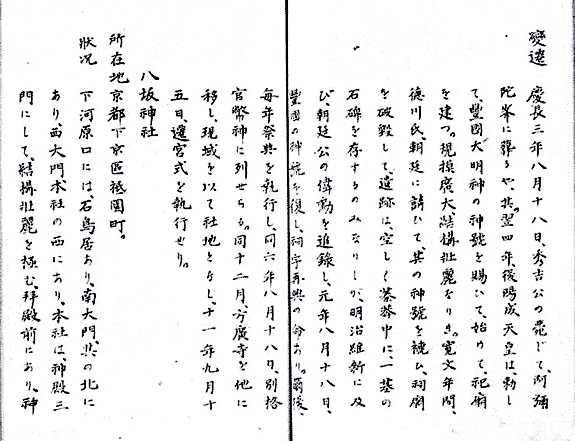 變遷　慶長三年八月十八日、秀吉公の薨じて、阿彌
陀峯に葬るや、其翌四年、後陽成天皇は、勅し
て、豐國大明神の神號を賜ひて、始めて、祀廟
を建つ。規模廣大、結構壯麗をりき。寛文年間、
徳川氏、朝廷に請ひて、其の神號を褫ひ、祠廟
を破毀して、遺跡は、空しく蓁莽中に、一基の
石碑を存するのみなりしが、明治維新に及
び、朝廷、公の偉勳を追錄し、元年八月十八日、
豐國の神號を復し、祠宇再興の命あり。爾後、
毎年祭典を執行し、同六年八月十八日、別格
官幣神に列せらる。同十二月、方廣寺を他に
移し、現域を以て社地となし、十一年九月十
五日、遷宮式を執行せり。
八坂神社
所在地　京都下京區祇園町。
狀況　下河原口には、石鳥居あり、南大門、其の北に
あり、西大門、本社の西にあり、本社は、神殿三
門にして、結構壯麗を極む、拜殿前にあり、神